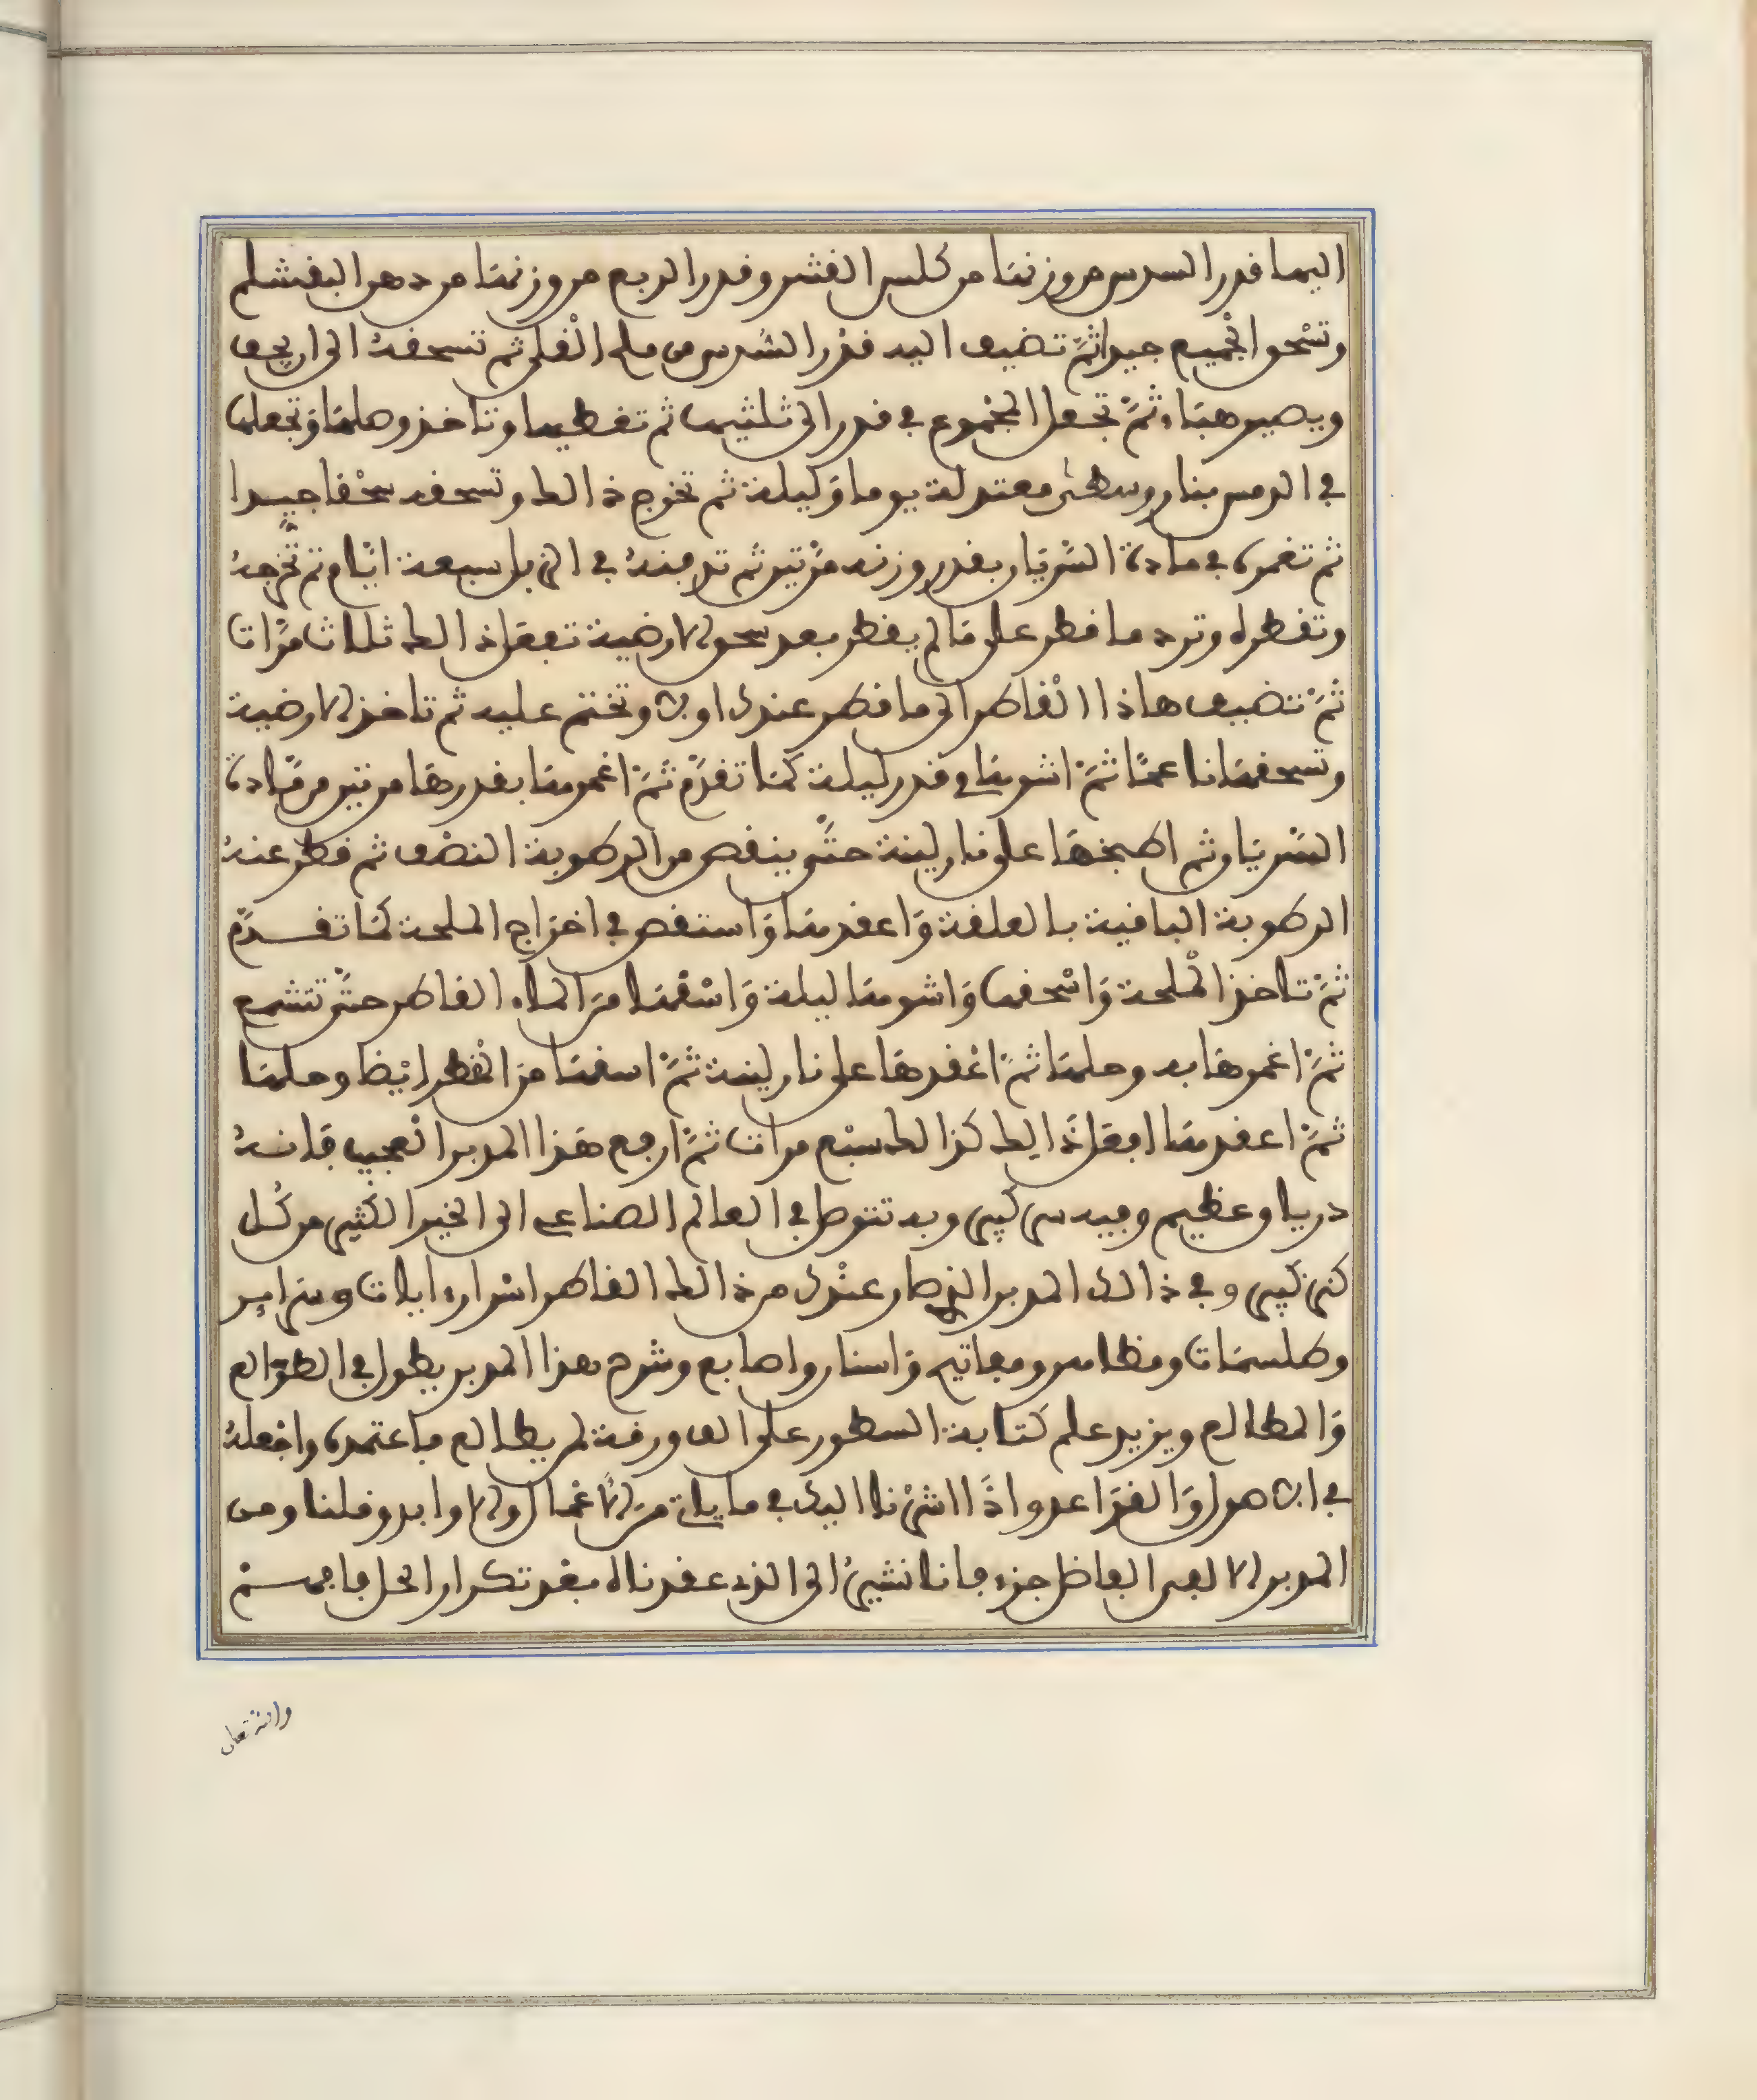 اليها قدر السدس من وزنها من كلس القشر وقدر الربع من وزنها من دهن البيض ثم
وتسْحق الجميع جيدا ثمّ تضيف اليه قدر السّدس من ملح القلى ثم تسحقه الى ان يجف
ويصير هباء ثمّ تجعل المجموع في قدر الى ثلثيها ثم تغطيها وتاخذ وصلها وتجعلها
في الرمس بنار وسطى معتدلة يوما وليلة ثم تخرج ذالك وتسحقه سحْقا جيدا
ثم تغمره في مادة السّريان بقدر وزنه مرّتين ثم تدفنه في الزبل سبعة ايّام ثم تخرجه
وتقطره وترد ما قطر على مالم يقطر بعد سحق الارضية تفعل ذالك ثلاث مرّات
ثمّ تضيف هاذا القاطر الى ما قطر عندك اولا وتختم عليه ثم تاخذ الارضية
وتسحقها ناعمًا ثمّ اشوها في قدر ليلة كما تقدّم ثمّ اغمرها بقدرها مرتين من مادة
السّريان ثم اطبخها على نار لينة حتّى ينقص من الرطوبة النصْف ثم قطر عنه
الرطوبة الباقية بالعلقة واعقدها واستقص في اخراج الملحة كما تقدّم
ثمّ تاخذ الملْحة واسْحقها واشوها ليلة واسْقها من الماء القاطر حتّى تتشمع
ثمّ اغمرها به وحلها ثمّ اعْقدها على نار لينة ثمّ اسقها من القطْر ايْضا وحلها
ثمّ اعقدها افعل ذالك كذالك سبْع مرات ثمّ ارفع هذا المدبر العجيب فانه
درياق عظيم وفيه سر كبير وبه تتوصل في العالم الصناعي الى الخير الكثير من كل
كنز كبير وفي ذالك المدبر الذي صار عنْدك من ذالك القاطر اسْرار وايات وبرابر
وطلسمات و ومفاتيح واستار واصابع وشرح هذا المدبر يطول في الطوالع
والمطالع ويزيد علم كتابة السطور على الف ورقة لم يطالع فاعتمده واجْعله
في الاصول والقواعد واذا اشرْنا اليك في ما ياتي من الاعمال الاول وابد وقلنا ومن
المدبر الا الفاضل جزء فانا نشير الى الذي عقدناه بعد تكرار الحل فافهم